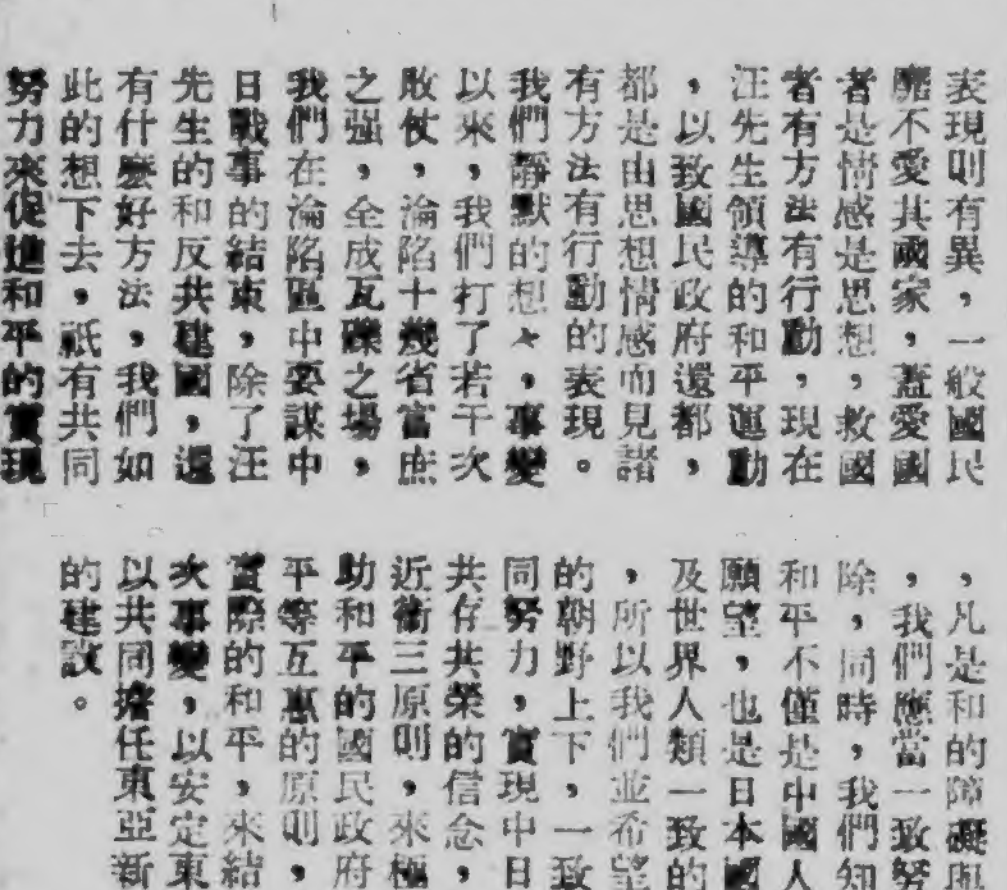 表現則有異，一般國民
靡不愛其國家，蓋愛國
者是情感是思想，救國
者有方法有行動，現在
汪先生領導的和平運動
，以致國民政府還都，
都是由思想情感而見諸
有方法有行動的表現。
我們靜默的想，事變
以來，我們打了若干次
敗仗，淪陷十幾省富庶
之强，全成瓦礫之場，
我們在淪陷區中要謀中
日戰事的結束，除了汪
先生的和反共建國，還
有什麼好方法，我們如
此的想下去，祇有共同
努力來促進和平的實現
，凡是和的障礙
，我們應當一致努
除，同時，我們知
和平不僅是中國人
願望，也是日本國
及世界人類一致的
，所以我們並希望
的朝野上下，一致
同努力，實現中日
共存共榮的信念，
近衞三原則，來極
助和平的國民政府
平等互惠的原則，
實際的和平，來結
次事變，以安定東
以共同擔任東亞新
的建設。